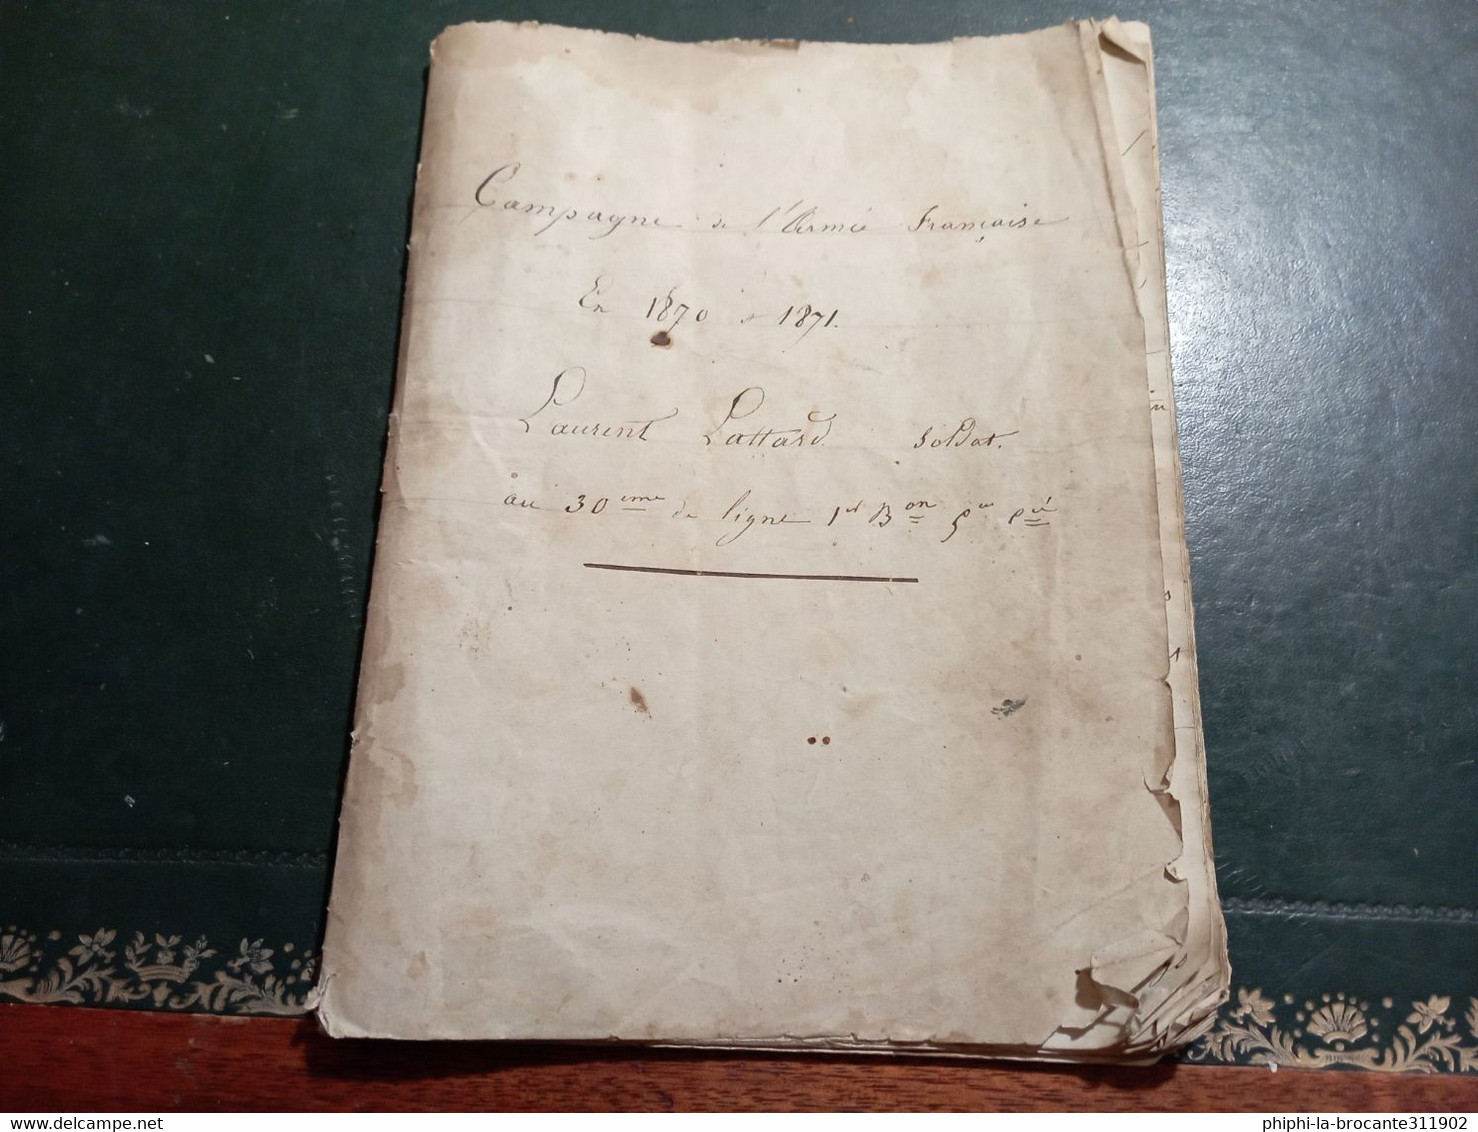 Campagne de l'Armée Française
En 1870 et 1871.
Laurent Lattard soldat.
au 30ème de ligne 1er Bon 5me Cie
phiphi-la-brocante311902